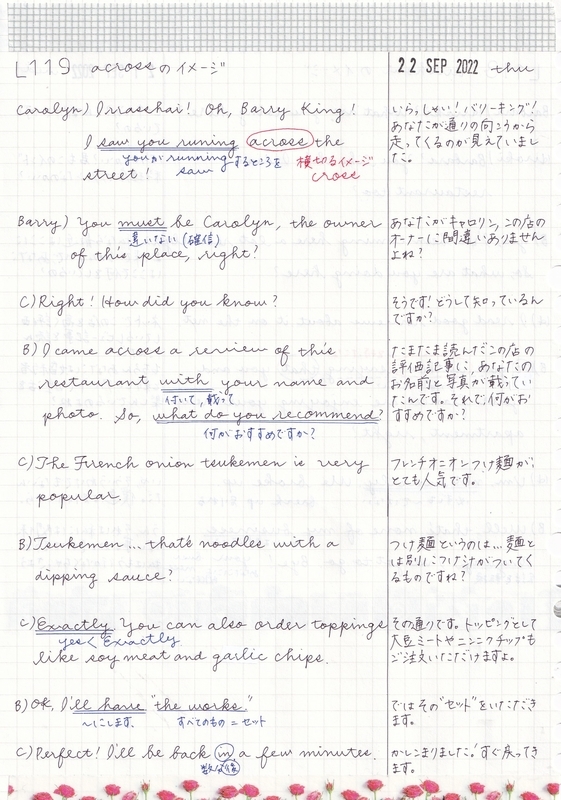 L119 acrossのイメージ 22 SEP 2022 thu
Carolyn) Irrasshai! Oh, Barry King!
I saw you runing across the
you が running するところを 横切るイメージ
saw cross
street!
いらっしゃい！バリーキング！
あなたが通りの向こうから
走ってくるのが見えていまし
た。
Barry) You must be Carolyn, the owner
違いない (確信)
of this place, right?
あなたがキャロリン、この店の
オーナーに間違いありません
よね？
C) Right! How did you know?
そうです！どうして知っているん
ですか？
B) I came across a review of this
restaurant with your name and
付いて、載って
photo. So, what do you recommend?
何がおすすめですか？
たまたま読んだこの店の
評価記事に、あなたの
お名前と写真が載ってい
たんです。それで、何がお
すすめですか？
C) The French onion tsukemen is very
popular.
フレンチオニオンつけ麺が、
とても人気です。
B) Tsukemen... that's noodles with a
dipping sauce?
つけ麺というのは…麺と
は別につけ汁がついてく
るものですね？
C) Exactly. You can also order toppings
yes < Exactly
like soy meat and garlic chips.
その通りです。トッピングとして
大豆ミートやニンニクチップも
ご注文いただけますよ。
B) OK, I'll have "the works."
〜にします。 すべてのもの = セット
ではその"セット"をいただき
ます。
C) Perfect! I'll be back in a few minutes.
数分後
かしこまりました。すぐ戻ってき
ます。